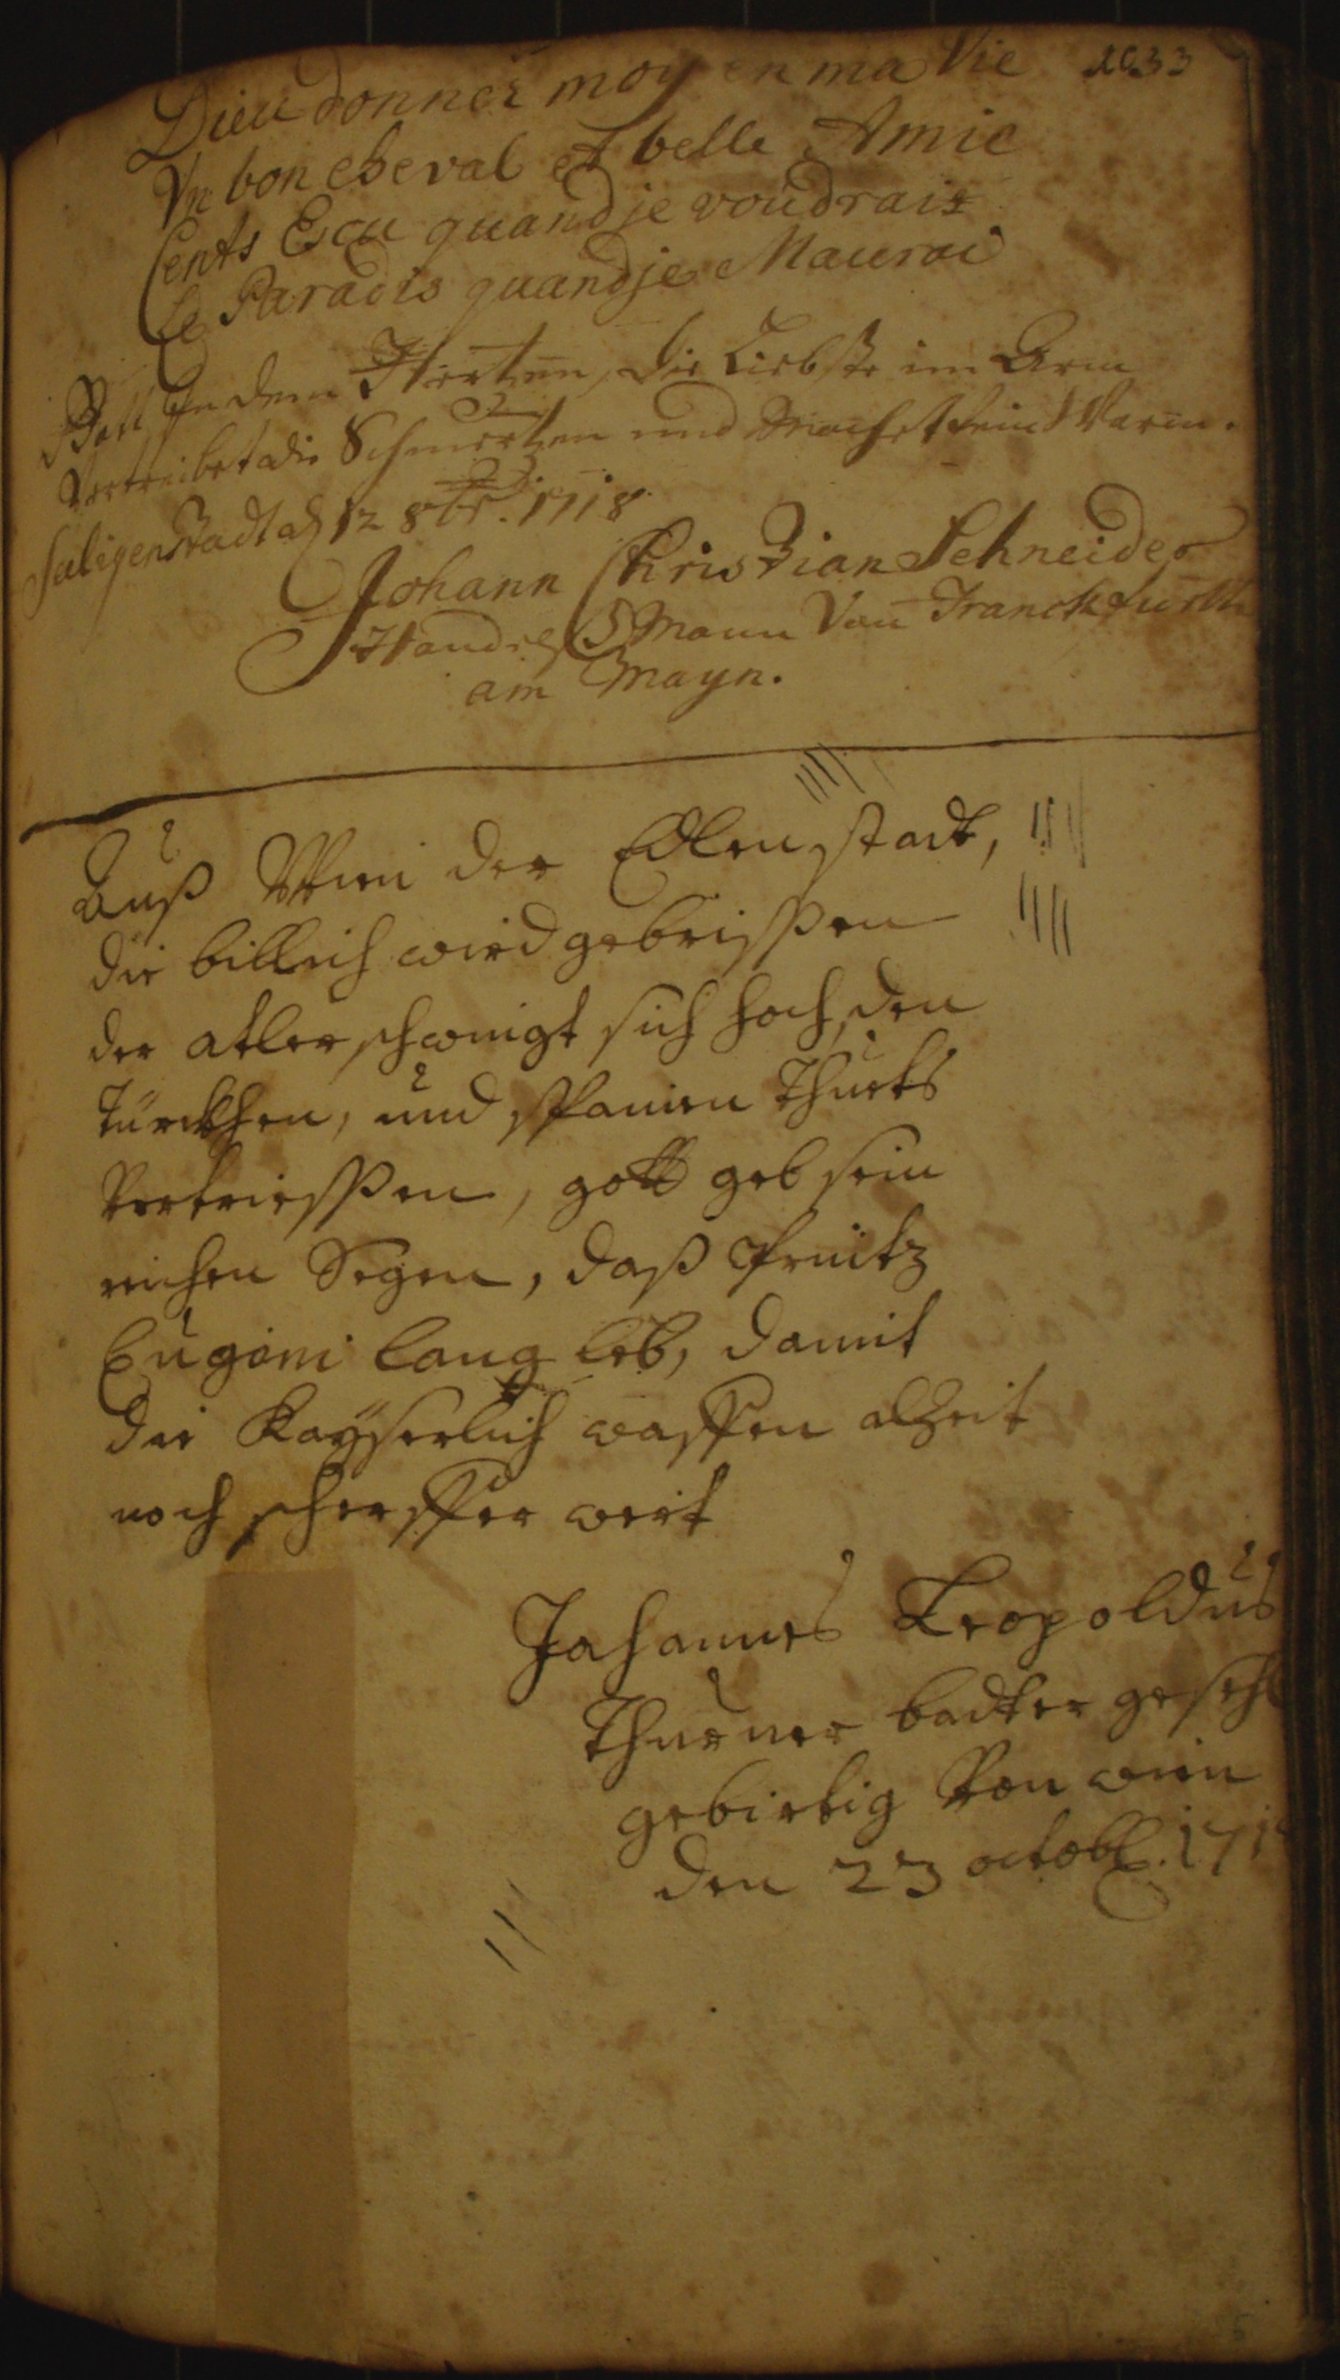 1033
Dieu donnei moy en ma Vie
Vn bon cheval et belle Amie
Cents Escu quand je voudrais
Le Paradis quand je Maurai
Gott In dem Hertzen, die Liebste im Arm
Vertreibet die Schmertzen und Machet fein Warm.
Seligenstadt d 12 8br. 1718
Johann Christian Schneider
Handelsmann Von Franckfurth
am Mayn.
Auß Wien der Edlen stadt,
die billich wird gebrißen
der atler schwingt sich hoch, den
Türckhen, und spanien thuets
Vertriessen, gott geb sein
reichen Segen, daß Printz
Eugeni lang leb, damit
die Kayserlich waffen alzeit
noch scherffer wert
Johannes Leopoldus
Thurner badter gesehl
gebirtig Von wien
den 23 octobl. 171